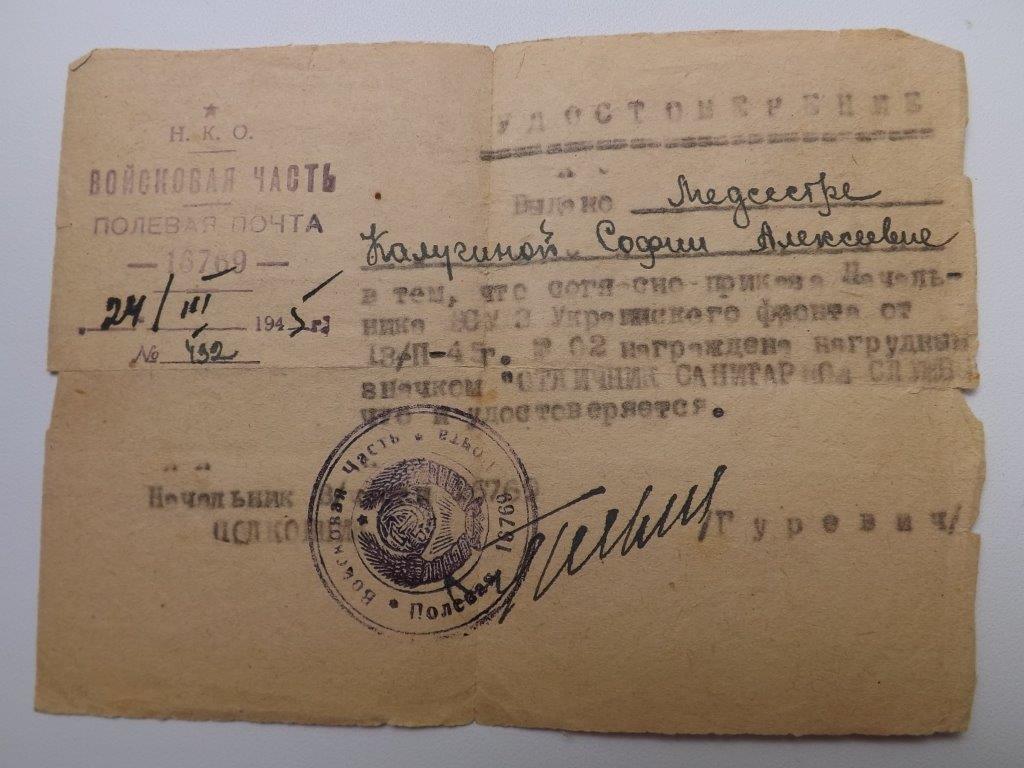 Н. К. О.
ВОЙСКОВАЯ ЧАСТЬ
ПОЛЕВАЯ ПОЧТА
— 16769 —
24/III 1945 г.
№ 492
УДОСТОВЕРЕНИЕ
Выдано Медсестре
Калугиной Софии Алексеевне
в том, что согласно приказа Началь-
ника ВСУ 3 Украинского фронта от
18/П-45 г. № 02 награждена нагрудным
значком "ОТЛИЧНИК САНИТАРНОЙ СЛУЖБ
что и удостоверяется.
Начальник 16769
/Гуревич/
Войсковая Часть * Полевая Почта 16769 *